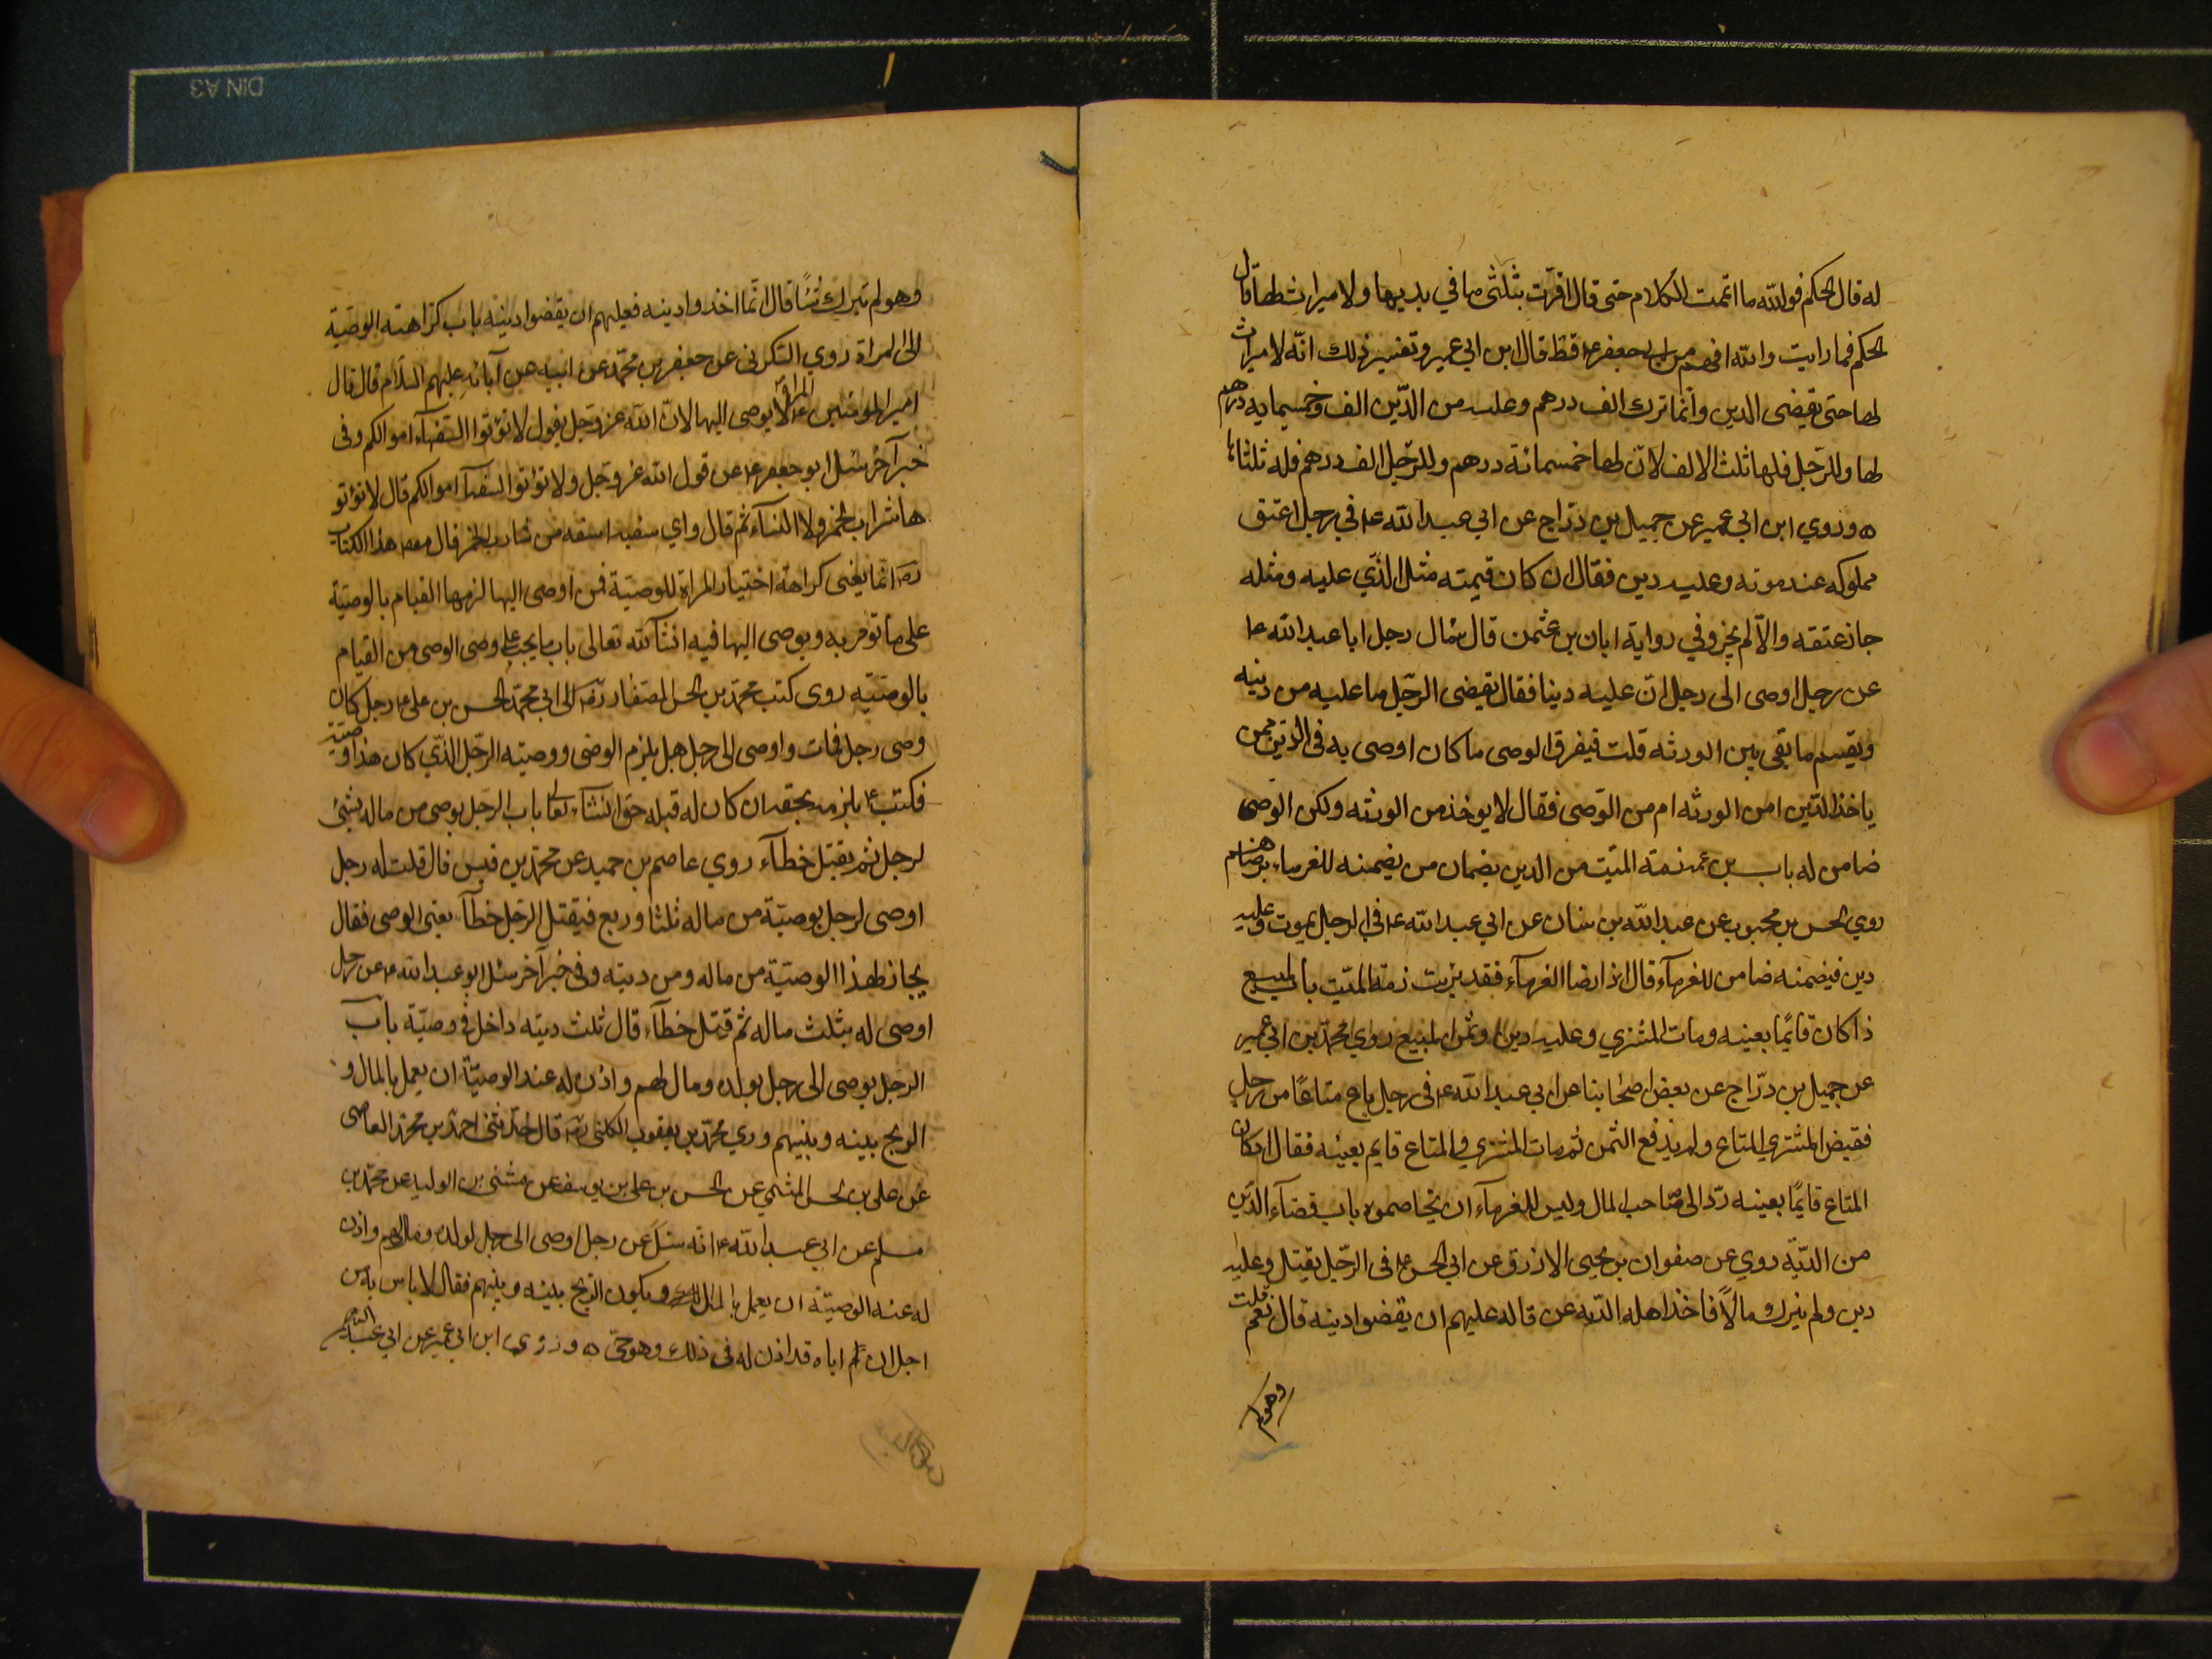 له قال الحكم فوالله ما اتممت الكلام حتى قال اقرت بثلثى ما في يديها ولا ميراث لها قال
الحكم فما رايت والله افهم من ابي جعفر ع قط قال ابن ابي عمير وتفسير ذلك انّه لا ميراث
لها حتى يقضى الدين وانما ترك الف درهم وعليه من الدّين الف وخمسمايه درهم
لها وللرّجل فلها ثلث الالف لانّ لها خمسمائة درهم وللرّجل الف درهم فله ثلثاها
ه وروي ابن ابي عمير عن جميل بن درّاج عن ابي عبد الله ع في رجل اعتق
مملوكه عند موته وعليه دين فقال ان كان قيمته مثل الذّي عليه ومثله
جاز عتقه والّا لم يجز وفي رواية ابان بن عثمن قال سٔال رجل ابا عبد الله ع
عن رجل اوصى الى رجل انّ عليه دينا فقال يقضى الرّجل ما عليه من دينه
ويقسم ما بقى بين الورثه قلت فيفرق الوصى ما كان اوصى به فى الدّين ممن
ياخذ الدّين امن الورثه ام من الوّصى فقال لا يوخذ من الورثته ولكن الوصى
ضامن له باب بن عمنمته الميّت من الدين بضمان من يضمنه للغرماء برضاهم
روي الحسن بن محبوب عن عبد الله بن سنان عن ابي عبد الله ع في الرجل يموت وعليه
دين فيضمنه ضامن للغرمآء قال اذا رضا الغرمآء فقد بزيت ذمّة الميّت باب المبيع
ذا كان قايمًا بعينه ومات المشتري وعليه دين وثمن المبيع روي محمّد بن ابي عمير
عن جميل بن درّاج عن بعض اصحابنا عن ابي عبد الله ع فى رجل باع متاعًا من رجل
فقبض المشتري المتاع ولم يدفع الثمن ثم مات المشتري والمتاع قايم بعينه فقال اذا كان
المتاع قايمًا بعينه ردّ الى صاحب المال وليس للغرمآء ان يخاصموه باب قضآء الدّين
من الديّة روي عن صفوان بن يحيى الازرق عن ابي الحسن ع فى الرّجل يقتل وعليه
دين ولم يترك مالاً فاخذ اهله الدّيه عن قاله عليهم ان يقضوا دينه قال نعم قلت
وهو لم
وهو لم يترك شئا قال انّما اخذوا دينه فعليهم ان يقضوا دينه باب كراهته الوصيّة
الى المراة روي السّكونى عن جعفر بن محمّد عن ابيه عن آبائهِ عليهم السّلام قال قال
امير المومنين ع المراة لا يوصى اليها لانّ الله عزوجّل يقول لا تؤتوا السّفهآء اموالكم وفى
خبر آخر سُئل ابو جعفر ع عن قول الله عزوجّل ولا تؤتوا السّفهآ اموالكم قال لا تؤتو
ها شراب الخمر ولا النسآء ثم قال واي سفيه اسفه من شارب الخمر قال مص هذا الكتاب
رَه انما يعنى كراهة اختيار المراة للوصيّة فمن اوصى اليها لزمها القيام بالوصيّة
على ما تومر به ويوصى اليها فيه انشآ الله تعالى باب ما يجب على وصى الوصى من القيام
بالوصيّته روى كتب محمّد بن الحسن الصّفار رَه الى ابي محمّد الحسن بن على ع رجل كان
وصى رجل فمات واوصى الى رجل هل يلزم الوصى ووصيته الرّجل الذّي كان هذا وصيّه
فكتب ع يلزمه بحقه ان كان له قبله حق انشآء تعالى باب الرّجل يوصى من ماله بشئ
لرجل ثم يقتل خطآء روي عاصم بن حميد عن محمّد بن قيس قال قلت له رجل
اوصى لرجل بوصيّة من ماله ثلثا وربع فيقتل الرّجل خطآء يعنى الوصى فقال
يجاز لهذا الوصيّة من ماله ومن ديته وفى خبر آخر سئل ابو عبد الله ع عن رجل
اوصى له بثلث ماله ثم قتل خطآء قال ثلث ديته داخل فى وصيّة باب
الرجل يوصى الى رجل بولده ومال لهم واذن له عند الوصيّة ان يعمل بالمال و
الربح بينه وبينهم وري محمّد بن يعقوب الكلنى رَه قال حدّثنى احمد بن محمّد العاصى
عن على بن الحسن الميثمي عن الحسن بن على بن يوسف عن مثنى بن الوليد عن محمّد بن
مسلم عن ابي عبد الله ع انه سئل عن رجل اوصى الى رجل لولده ومال لهم واذن
له عند الوصيّة ان يعمل بالمال ويكون الرّبح بينه وبينهم فقال لا باس به من
اجل ان اباه قد اذن له فى ذلك وهو حىّ ه وروي ابن ابي عمير عن ابي عبد الله